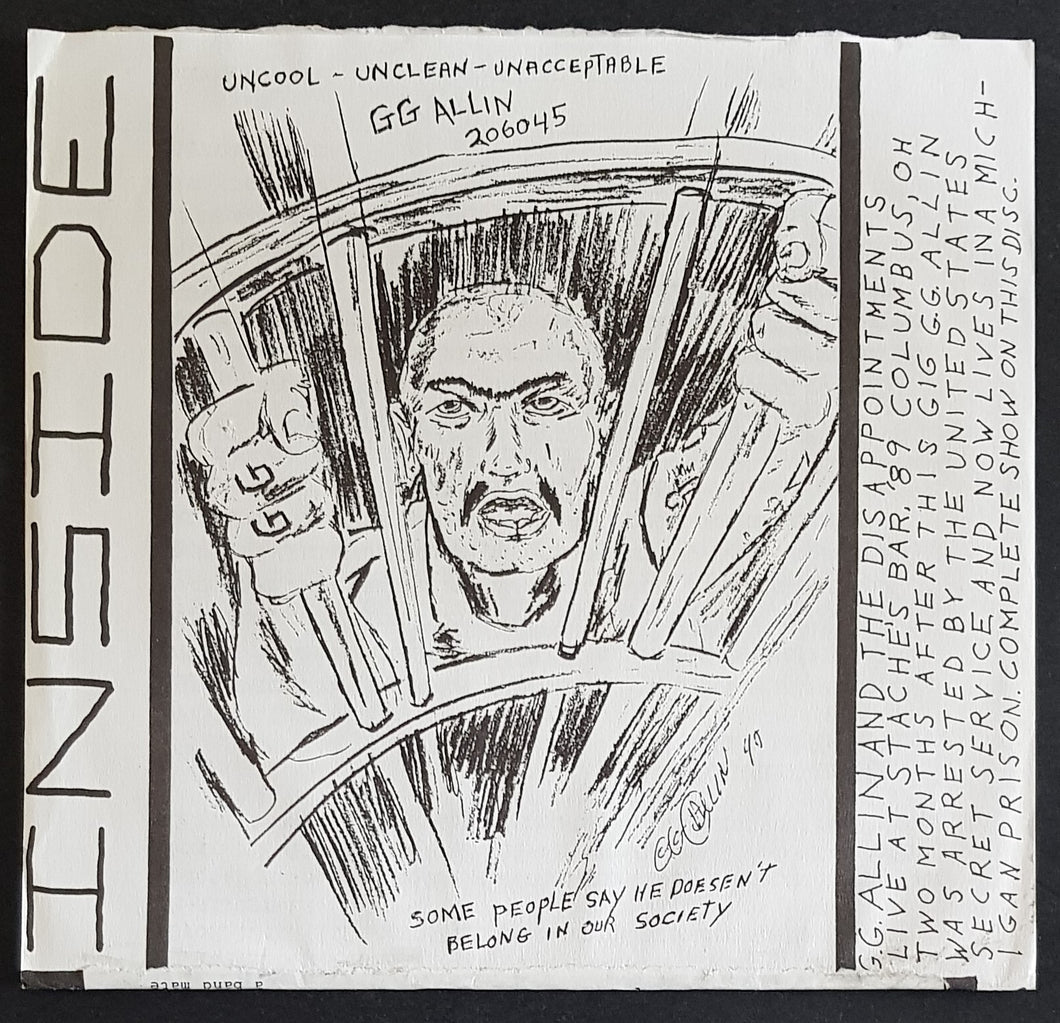 INSIDE
UNCOOL - UNCLEAN - UNACCEPTABLE
GG ALLIN
206045
GG
GG Allin 90
SOME PEOPLE SAY HE DOESEN'T
BELONG IN OUR SOCIETY
G.G. ALLIN AND THE DISAPPOINTMENTS
LIVE AT STACHES BAR, '89 COLUMBUS, OH
TWO MONTHS AFTER THIS GIG G.G. ALLIN
WAS ARRESTED BY THE UNITED STATES
SECRET SERVICE, AND NOW LIVES IN A MICH-
IGAN PRISON. COMPLETE SHOW ON THIS DISC.
a band mate